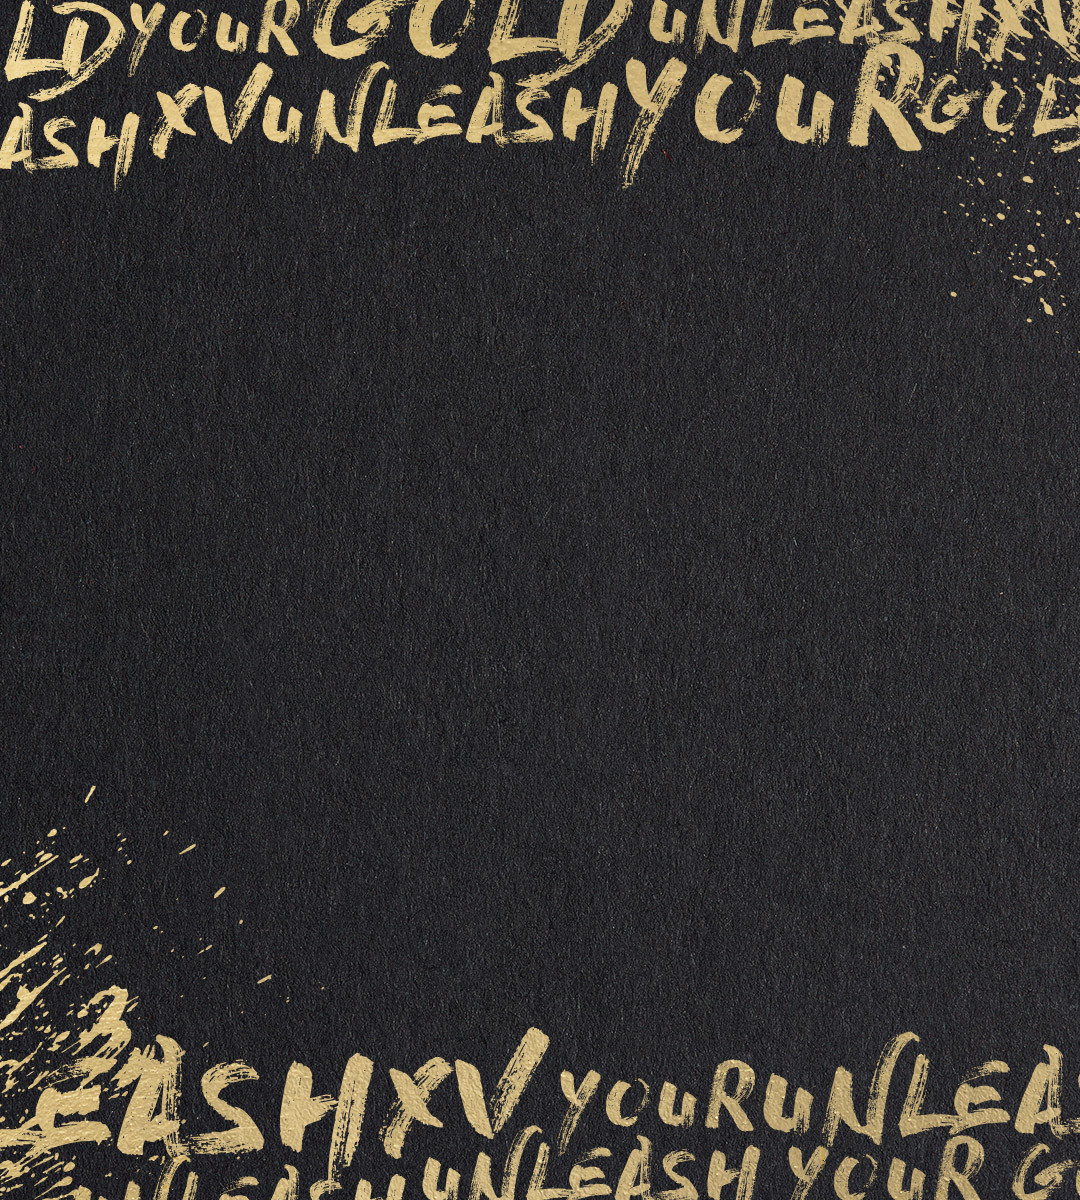 LD YOUR GOLD UNLEASH XV
ASH XV UNLEASH YOUR GOLD
EASH XV YOUR UNLEAS
UNLEASH UNLEASH YOUR GO